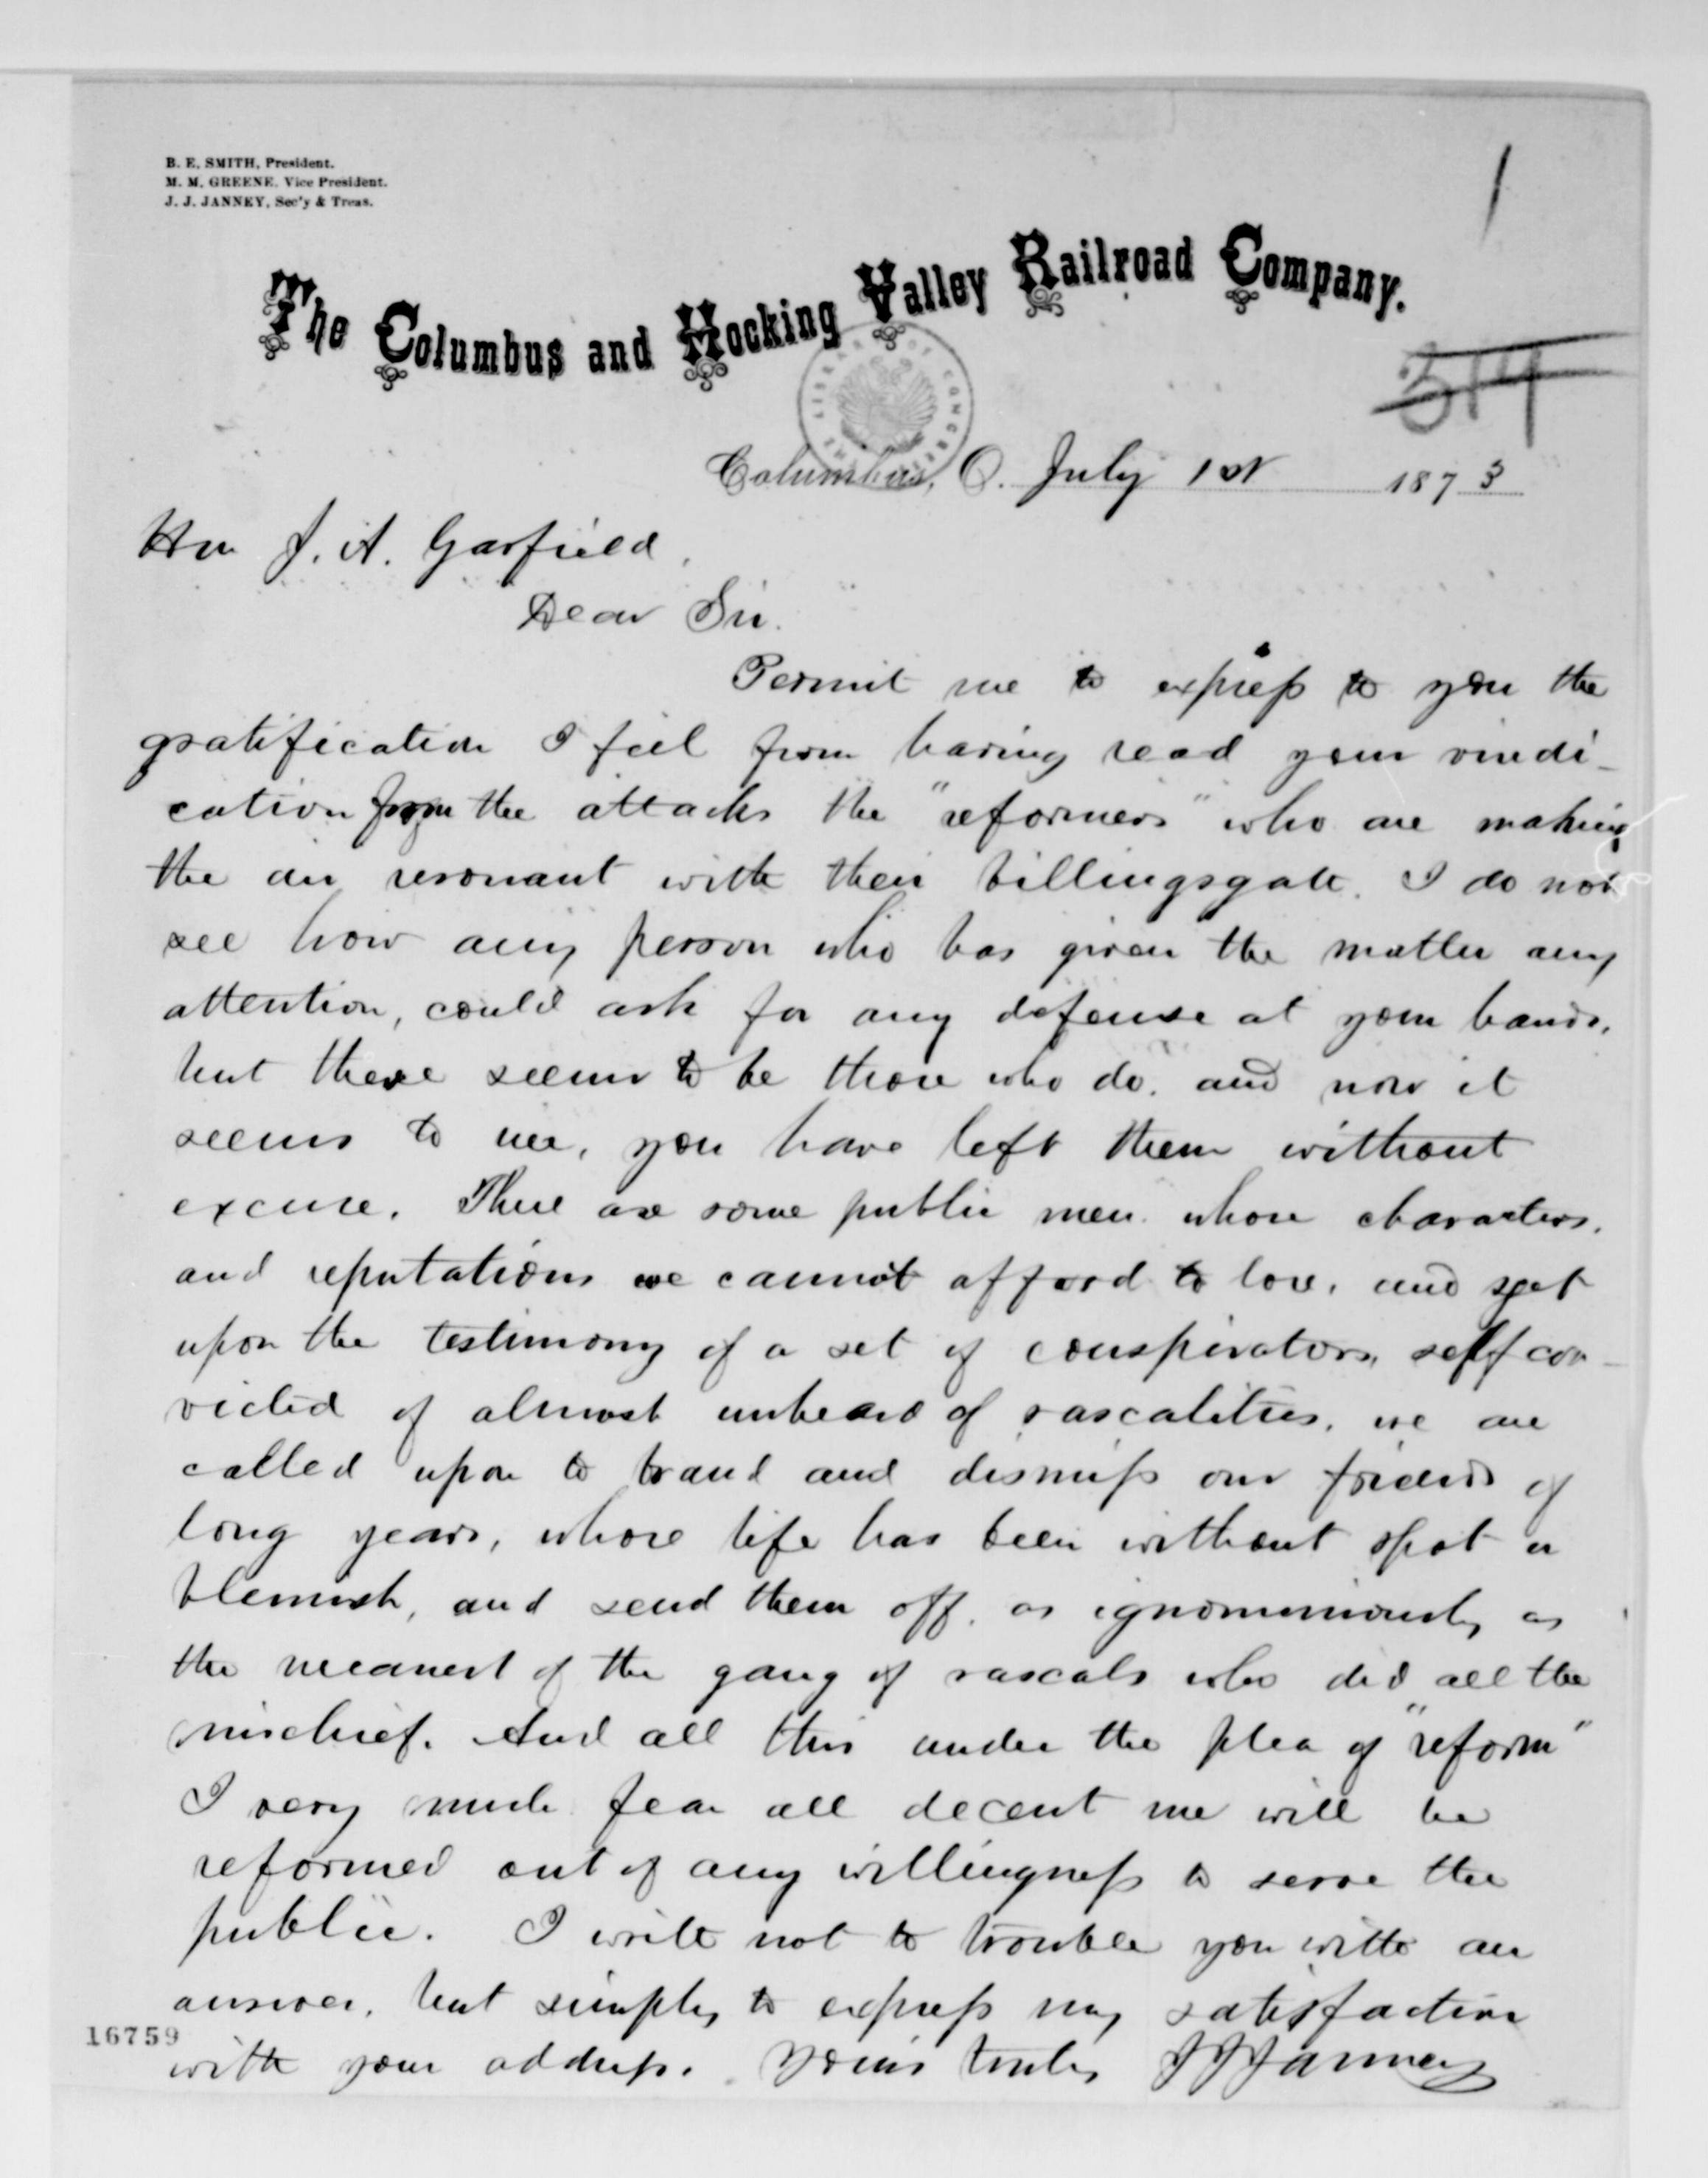 B. E. SMITH, President.
M. M. GREENE, Vice President.
J. J. JANNEY, Sec'y & Treas.
1
The Columbus and Hocking Valley Railroad Company.
LIBRARY OF CONGRESS
314
Columbus, O. July 1st 1873
Hon J. A. Garfield,
Dear Sir.
Permit me to express to you the
gratification I feel from having read your vindi-
cation from the attacks the "reformers" who are making
the air resonant with their billingsgate. I do not
see how any person who has given the matter any
attention, could ask for any defense at your hands,
but there seems to be those who do. and now it
seems to me, you have left them without
excuse. There are some public men whose characters,
and reputations we cannot afford to lose, and yet
upon the testimony of a set of conspirators, self con-
victed of almost unheard of rascalities, we are
called upon to brand and dismiss our friends of
long years, whose life has been without spot or
blemish, and send them off, as ignominiously as
the meanest of the gang of rascals who did all the
mischief. And all this under the plea of "reform"
I very much fear all decent me will be
reformed out of any willingness to serve the
public. I write not to trouble you with an
answer, but simply to express my satisfaction
16759
with your address. Yours truly J J Janney